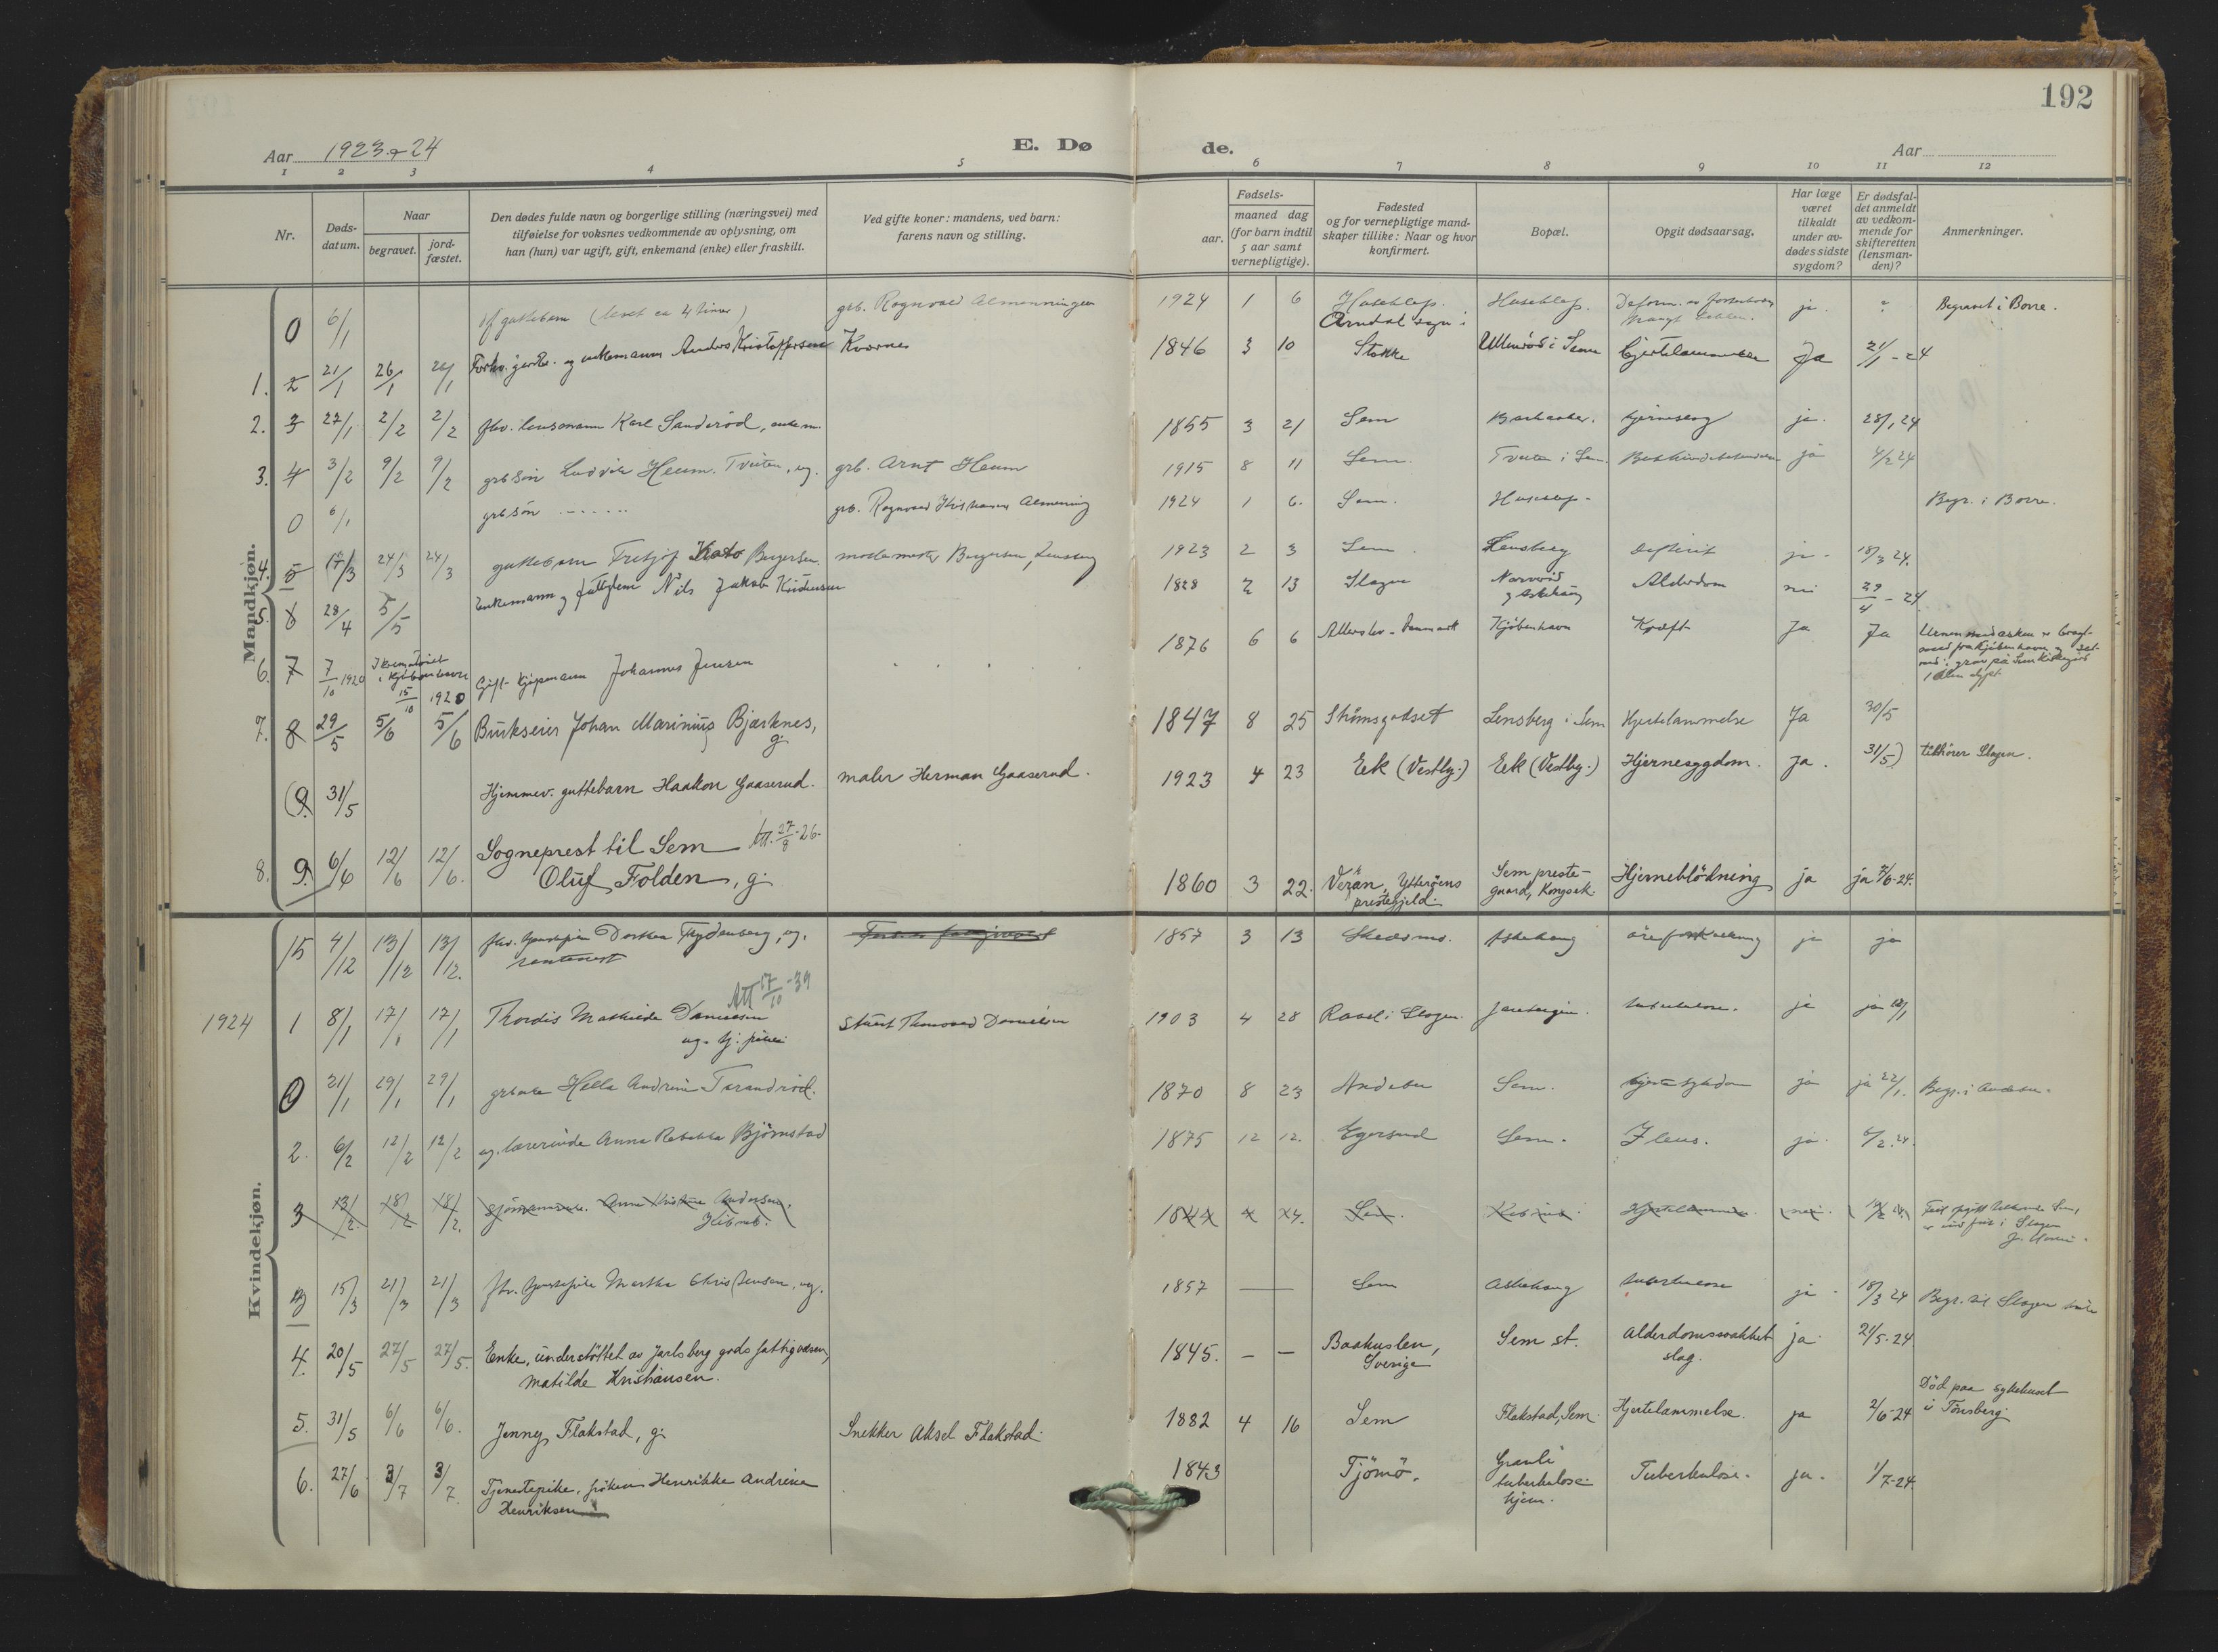 192
Aar 1923 & 24
E. Dø
de.
Aar
1 2 3 4 5 6 7 8 9 10 11 12
Nr.
Døds-
datum.
Naar
begravet.
jord-
fæstet.
Den dødes fulde navn og borgerlige stilling (næringsvei) med
tilføielse for voksnes vedkommende av oplysning, om
han (hun) var ugift, gift, enkemand (enke) eller fraskilt.
Ved gifte koner: mandens, ved barn:
farens navn og stilling.
Fødsels-
aar.
maaned dag
(for barn indtil
5 aar samt
vernepligtige).
Fødested
og for vernepligtige mand-
skaper tillike: Naar og hvor
konfirmert.
Bopæl.
Opgit dødsaarsag.
Har læge
været
tilkaldt
under av-
dødes sidste
sygdom?
Er dødsfal-
det anmeldt
av vedkom-
mende for
skifteretten
(lensman-
den)?
Anmerkninger.
Mandkjøn.
0 6/1 guttebarn (levet ca 4 timer) grb. Ragnvald Almenningen 1924 1 6 Huseklep. Huseklep. ja. Begravet i Borre.
1. 2 21/1 26/1 26/1 Forhv. gaardbr. og enkemann Anders Kristoffersen Kvernes 1846 3 10 Arndal sogn i Stokke Ullevød i Sem Hjertelammelse Ja 21/1-24
2. 3 27/1 2/2 2/2 fhv. lensmann Karl Sanderød, enkem. 1855 3 21 Sem Barkaaker. ja. 28/1 24
3. 4 3/2 9/2 9/2 grb søn Ludvik Heum. Tveiten, ug. grb. Arnt Heum 1915 8 11 Sem. Tveiten i Sem. ja 4/2 24
0 6/1 grb søn grb. Ragnvald Kristiansen Almening 1924 1 6. Sem. Huseklep. Begr. i Borre.
4. 5 17/3 24/3 24/3 guttebarn Fritjof Kato Bergersen. Bergersen, Lensberg 1923 2 3 Sem. Lensberg Difterit ja. 18/3 24.
5. 6 28/4 5/5 Enkemann og fattiglem Nils Jakob Kristensen 1828 2 13 Slagen Narverød og Askehaug Alderdom nei 29/4-24
6. 7 7/10 1920 I krematoriet i Kjøbenhavn 15/10 1920 Gift- Kjøpmann Johannes Jensen 1876 6 6 Allerslev-Danmark Kjøbenhavn Kræft Ja Ja Urnen med asken er bragt
med fra Kjøbenhavn og sat
ned i grav på Sem Kirkegård
1 Alen dypt
7. 8 29/5 5/6 5/6 Brukseier Johan Marinius Bjerknes, g. 1847 8 25 Strømsgodset Lensberg i Sem Hjertelammelse Ja 30/5
(9. 31/5 Hjemmev. guttebarn Haakon Gaaserud. maler Herman Gaaserud. 1923 4 23 Eek (Vestby.) Eek (Vestby.) Hjernesygdom. Ja. 31/5) tilhører Slagen.
8. 9. 6/6 12/6 12/6. Sogneprest til Sem Att. 27/8-26.
Oluf Folden, g. 1860 3 22. Veran, Ytterøens
prestegjeld. Sem preste-
gaard, Hjerneblödning ja ja 7/6-24.
Kvindekjøn.
15 4/12 13/12 13/12. fhv. tjenestepike Dorthea Thydenberg, ug. 1857 3 13 Skedsmo. Askehaug ja ja
Att 17/10-39
1924 1 8/1 17/1 17/1 Thordis Mathilde Danielsen
ug. tj. pike Thorvald Danielsen 1903 4 28 Ravel i Slagen. Jarlsbergin. tuberkulose. ja ja
0 21/1 29/1 29/1 Hella Andrine Tarandrød. 1870 8 23 Andebu Sem. hjertesykdom ja ja 22/1. Begr. i Andebu.
2. 6/2 12/2 12/2 ug. lærerinde Anna Rebekka Bjørnstad 1875 12 12. Egersund Sem. Ileus. ja. 6/2.24.
3 13/2. 18/2 18/2. Anne Kristine Andersen. 1844 4 24. Sem. Hjertelammelse. nei.
3 15/3 21/3 21/3 fhv. tjenestepike Marthe Christensen, ug. 1857 — Sem Askehaug tuberkulose ja. 18/3 24 Begr. til Slagen
4. 20/5 27/5 27/5. Enke, understöttet av Jarlsberg gods fattigvæsen,
Matilde Kristiansen. 1845. — — Baahuslen,
Sverige Sem st. Alderdomssvakhet
slag. ja. 21/5-24
5. 31/5 6/6 6/6. Jenny Flakstad, g. Snekker Aksel Flakstad. 1882 4 16 Sem Flakstad, Sem. Hjertelammelse. ja 2/6-24 Död paa sykehuset
i Tönsberg.
6. 27/6 3/7 3/7. Tjenestepike, fröken Henrikke Andrine
Henriksen 1843 Tjömö. Granli
tuberkulose-
hjem. Tuberkulose. ja. 1/7-24.